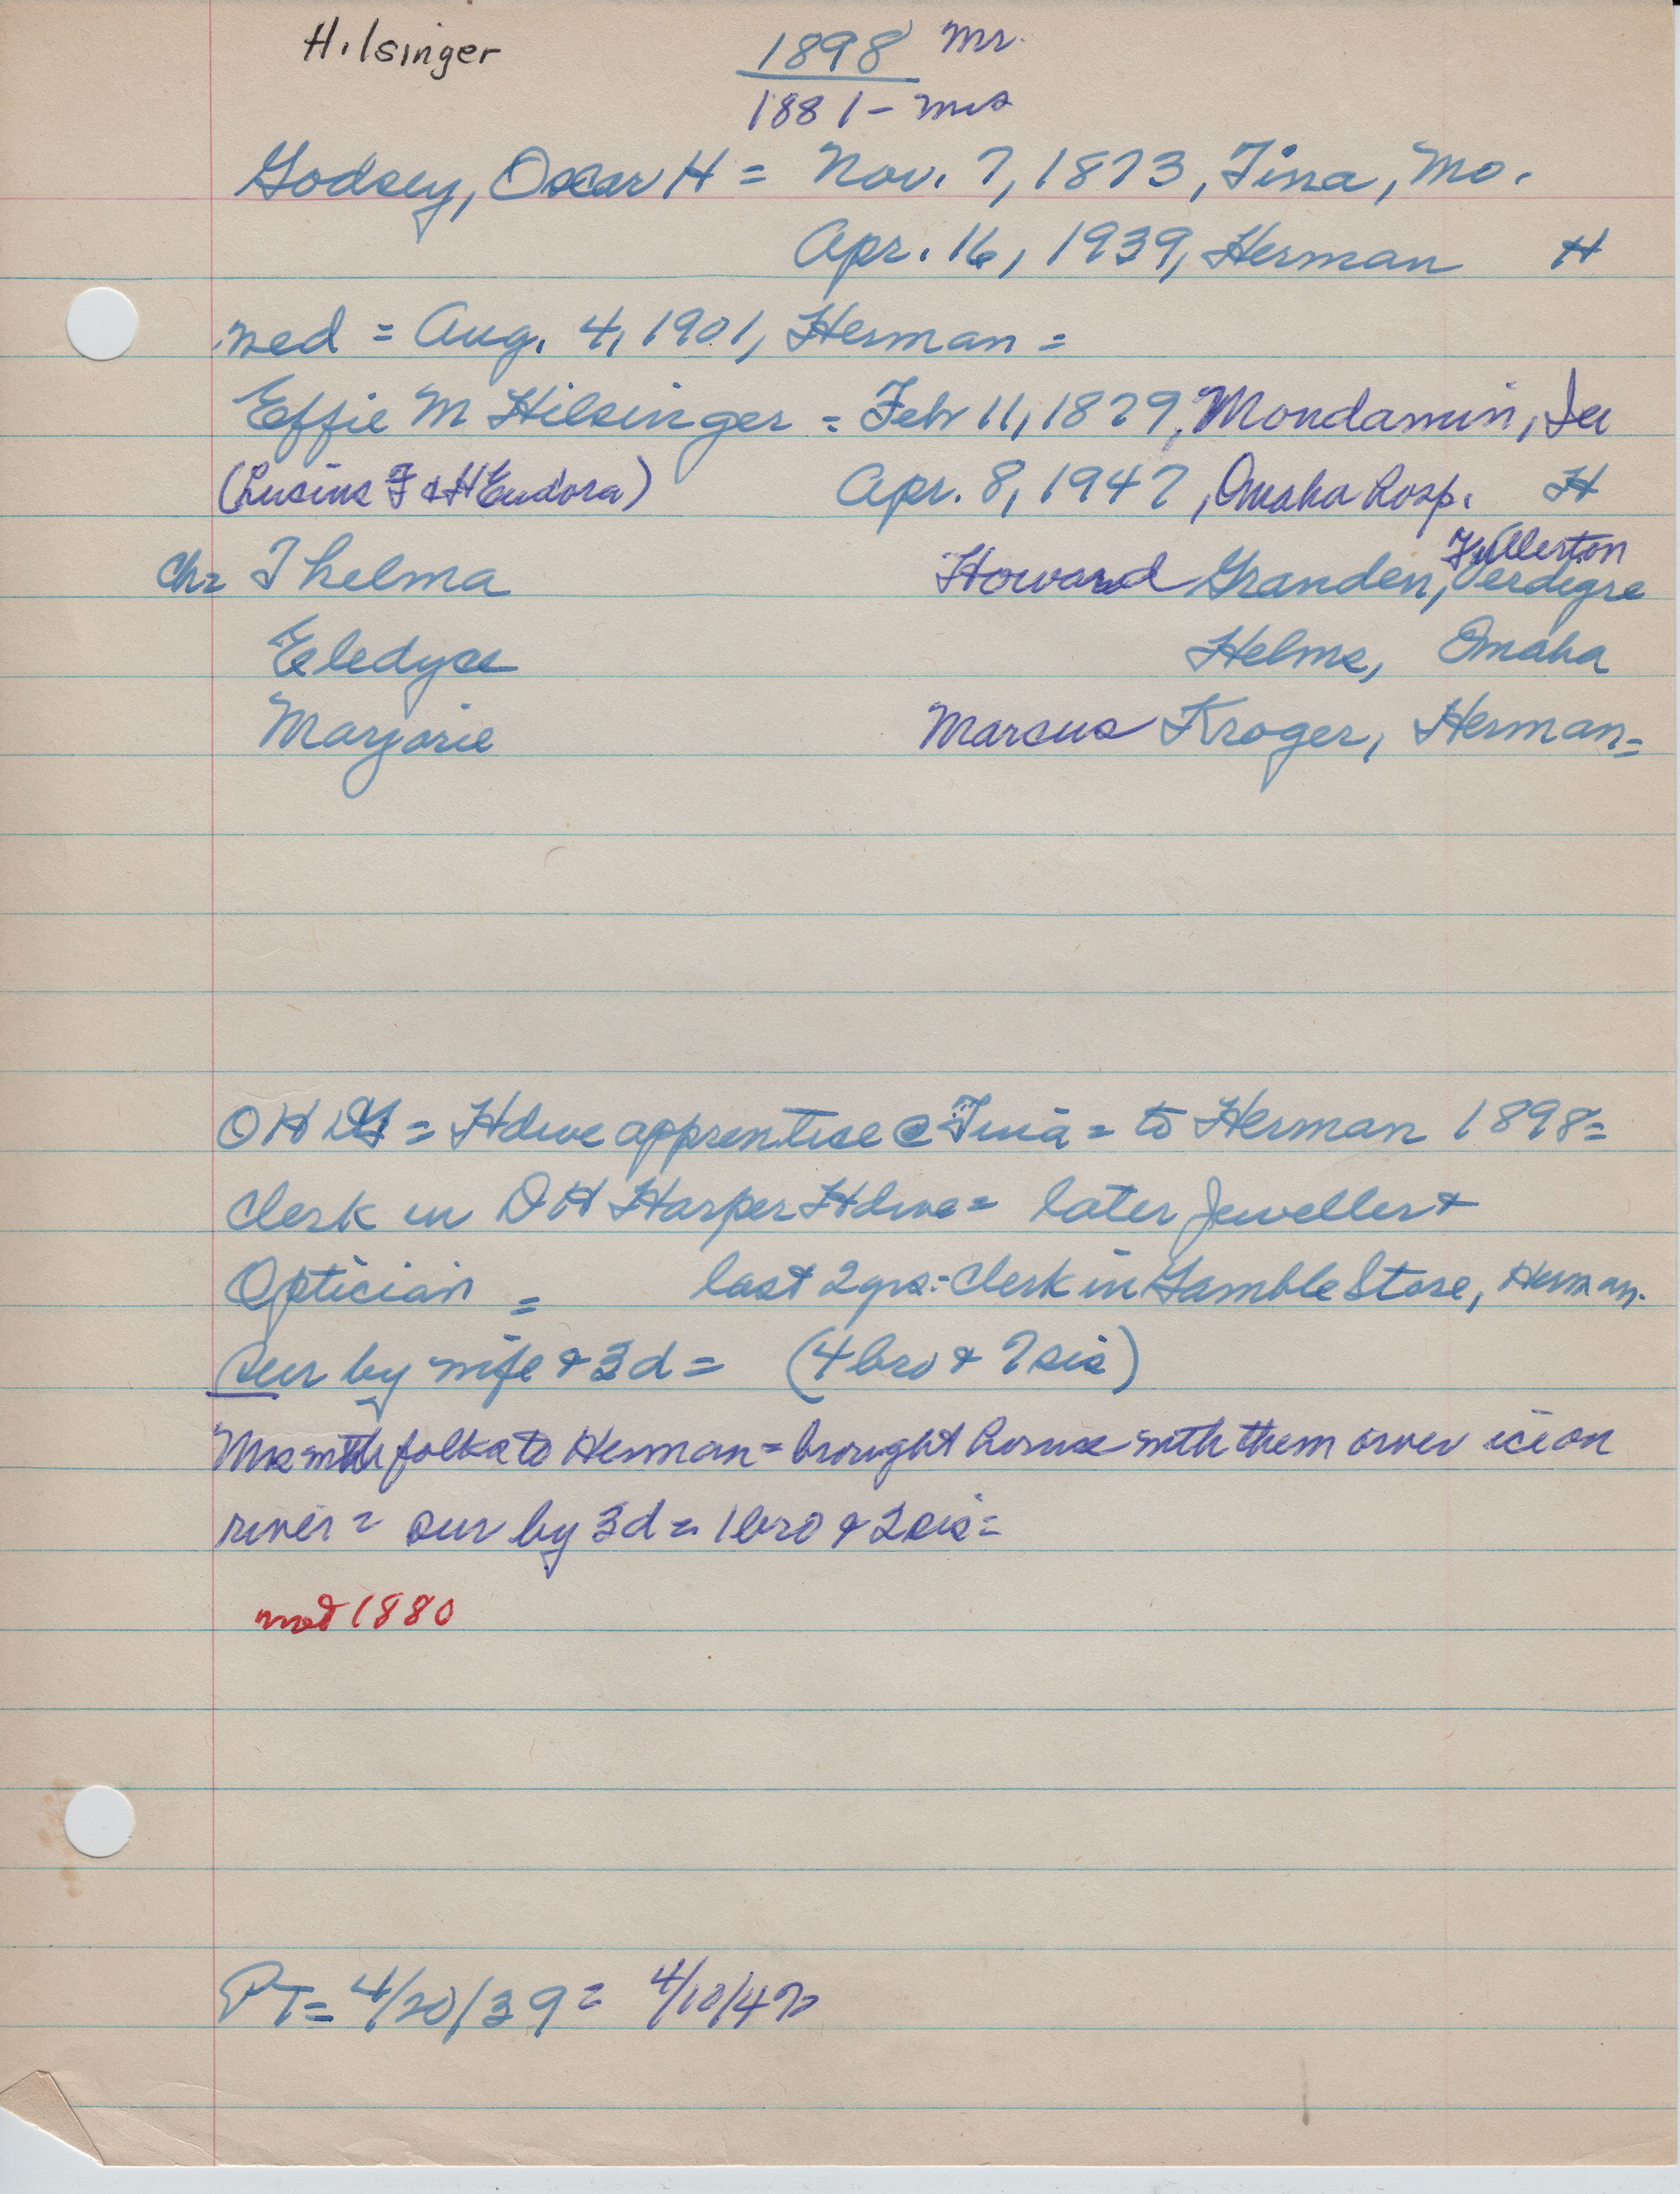 Hilsinger
1898 Mr.
1881 - Mrs
Godsey, Oscar H = Nov. 7, 1873, Tina, Mo.
Apr. 16, 1939, Herman H
wed = Aug. 4, 1901, Herman =
Effie M Hilsinger = Feb 11, 1879, Mondamin, Ia
(Lusius F & H Eudora) Apr. 8, 1947, Omaha hosp. H
Fullerton
Ch= Thelma Howard Granden, Verdigre
Eledyce Helms, Omaha
Marjorie Marcus Kroger, Herman =
OH G = Hdwe apprentice @ Tina = to Herman 1898 =
Clerk in DH Harper Hdwe = later Jeweller &
Optician = last 2 yrs = Clerk in Gamble Store, Herman.
Sur by wife & 3 d = (4 bro & 7 sis)
Mrs with folks to Herman = brought house with them over ice on
river = sur by 3 d = 1 bro & 2 sis =
not 1880
PT = 4/20/39 = 4/10/47